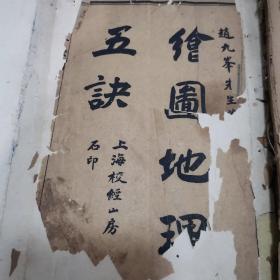 趙九峯先生
繪圖地理
五訣
上海校經山房
石印